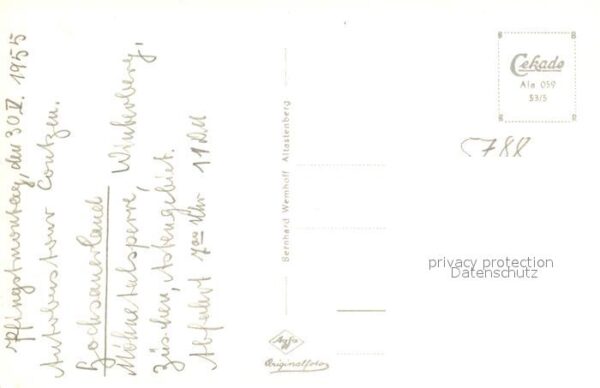 Pfingstmontag, den 30.V. 1955
Autobustour Contzen.
Hochsauerland
Möhnetalsperre, Winterberg,
Züschen, Astengebiet.
Abfahrt 7⁰⁰ Uhr 11 DM
Bernhard Wemhoff Altastenberg
Cekade
Ala 059
53/5
5788
privacy protection
Datenschutz
Agfa
Originalfoto